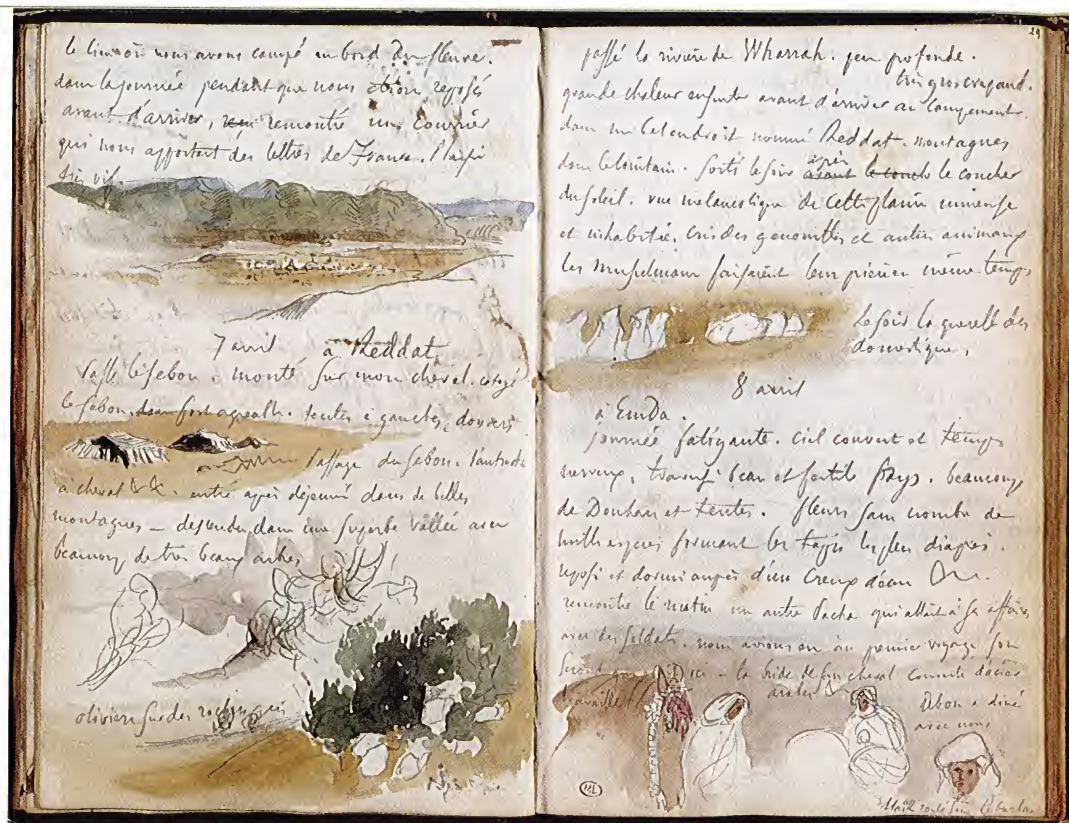 le lieu où nous avons campé au bord du fleuve.
dans la journée pendant que nous étions reposés
avant d'arriver, remontré un courrier
qui nous apportait des lettres de France. Plaisir
très vif.
7 avril à Reddat
Passé le Sebou. monté sur mon cheval. cotoyé
le Sebou. fort agréable. tentes à gauche, douars
Passage du Sebou.
à cheval &c &c. entré après déjeuné dans de belles
montagnes – descendu dans une superbe vallée avec
beaucoup de très beaux arbres
oliviers sur des rochers gris
29
passé la rivière de Wharrah. peu profonde.
très gros crapaud.
grande chaleur ensuite avant d'arriver au campement.
dans un bel endroit nommé Reddat. montagnes
dans le lointain. sorti le soir après avant le couch le coucher
du soleil. vue mélancolique de cette plaine immense
et inhabitée. cris des grenouilles et autres animaux
les musulmans faisaient leur prière en même temps
Le soir la querelle des
domestiques.
8 avril
à Emda.
journée fatigante. ciel couvert et temps
nerveux, traversé beau et fertile pays. beaucoup
de Douhars et tentes. fleurs sans nombre de
mille espèces formant les tapis les plus diaprés.
reposé et dormi auprès d'un creux d'eau
rencontré le matin un autre Pacha qui allait à ses affaires
avec des soldats. nous avions eu au premier voyage son
ici – la bride de son cheval couverte d'acier
travaillé
arabes
Abou a diné
avec nous
ML